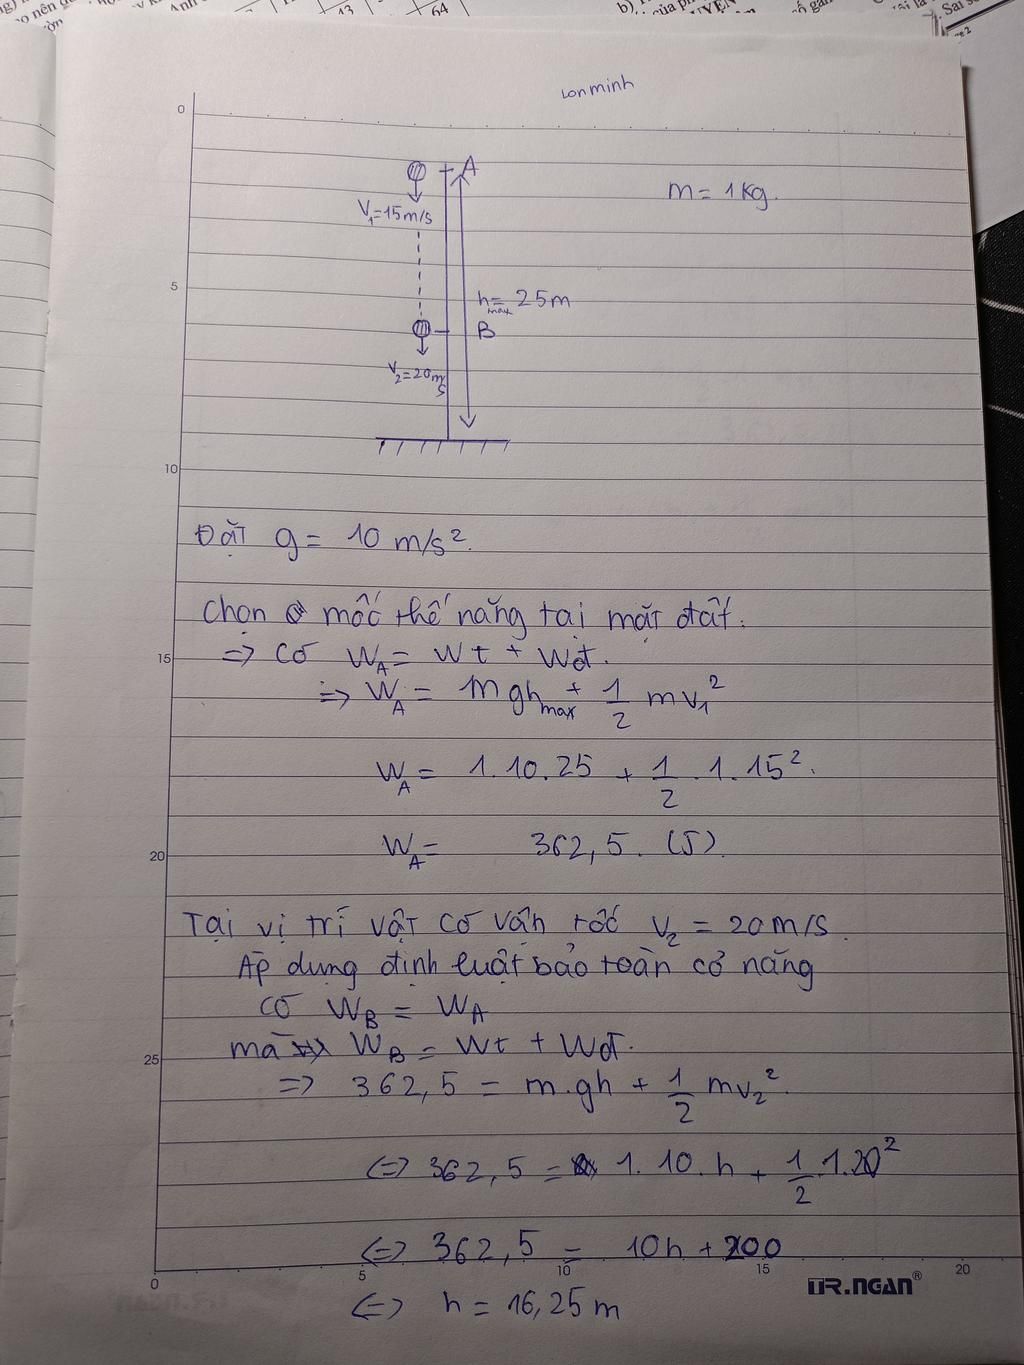 lonminh
0
A
m = 1kg.
V₁=15m/s
5
h = 25m
max
B
V₂=20m/s
10
Đặt g = 10 m/s².
Chọn mốc thế năng tại mặt đất.
15
=> có W_A = Wt + Wđ.
=> W_A = mgh_max + 1/2 mv₁²
W_A = 1.10.25 + 1/2 .1.15².
20
W_A = 362,5. (J).
Tại vị trí vật có vận tốc v₂ = 20m/s.
Áp dụng định luật bảo toàn cơ năng
có W_B = W_A
25
mà W_B = Wt + Wđ.
=> 362,5 = m.gh + 1/2 mv₂².
<=> 362,5 = 1.10.h + 1/2 .1.20²
<=> 362,5 = 10h + 200
0 5 10 15 20
TR.NGAN®
<=> h = 16,25m